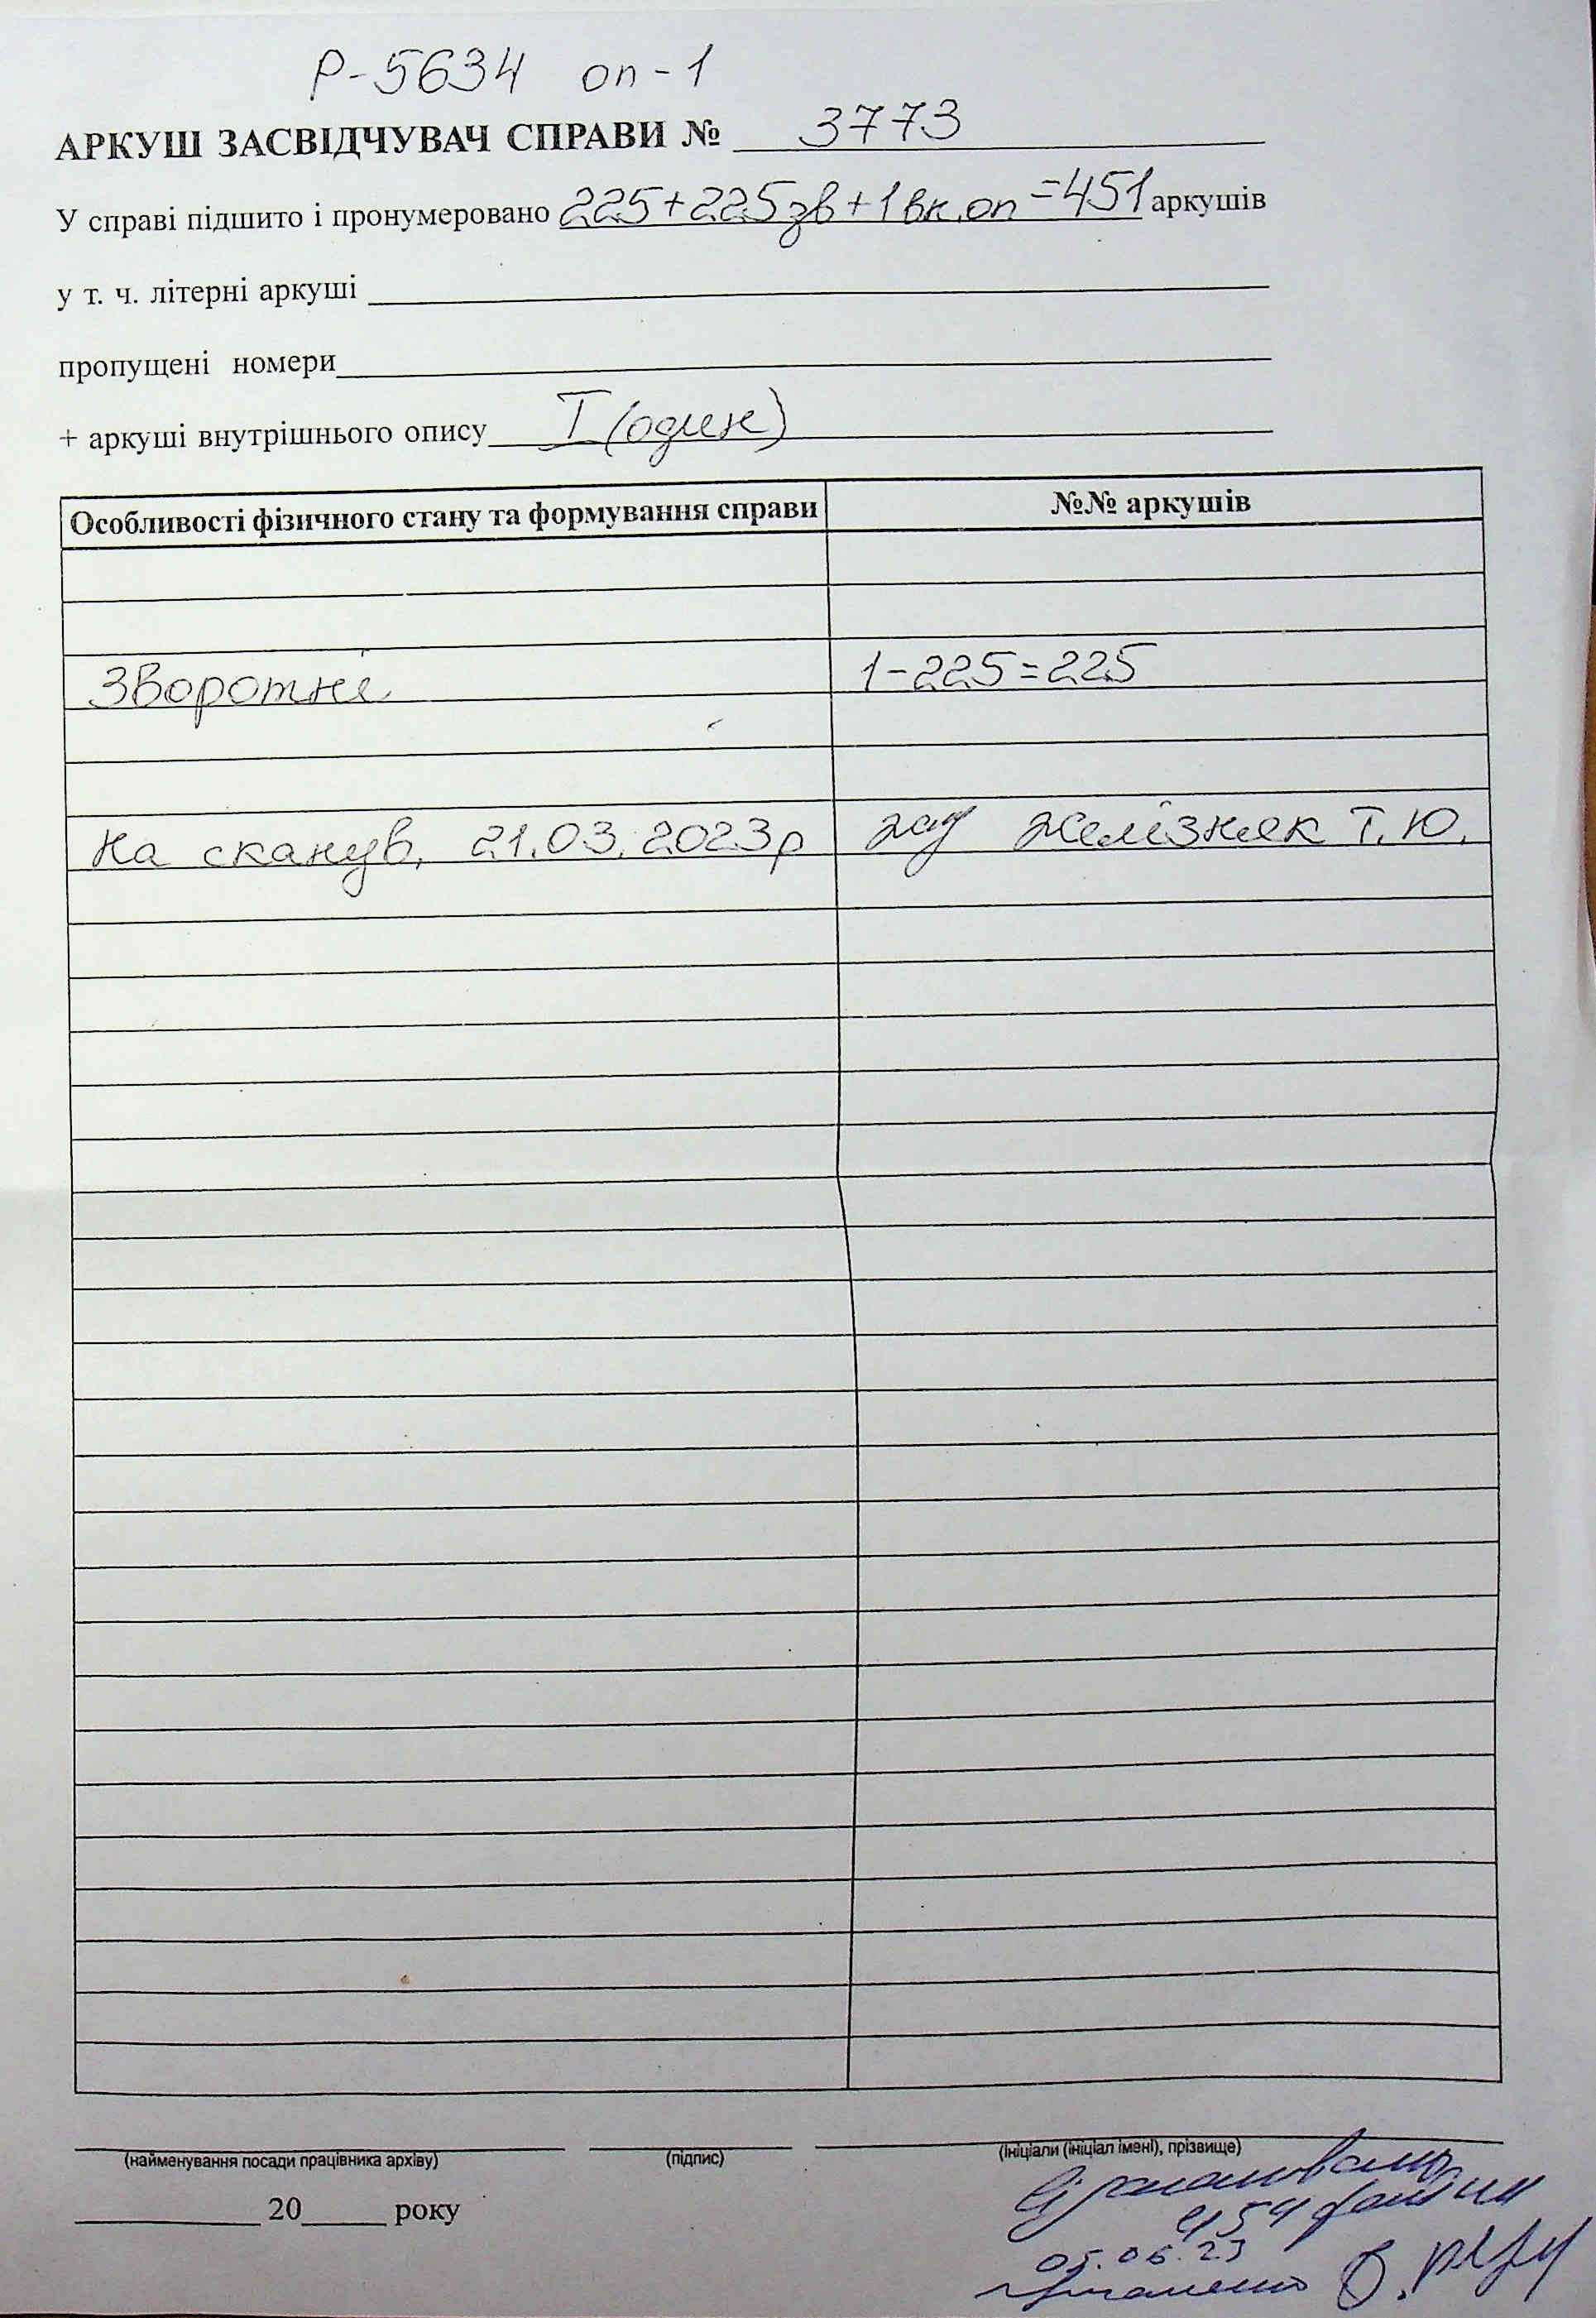 Р-5634 оп-1
АРКУШ ЗАСВІДЧУВАЧ СПРАВИ № 3773
У справі підшито і пронумеровано 225+225зв+1вк.оп=451 аркушів
у т. ч. літерні аркуші
пропущені номери
+ аркуші внутрішнього опису I (один)
Особливості фізичного стану та формування справи №№ аркушів
Зворотні 1-225=225
На сканув. 21.03.2023р Желізняк Т.Ю.
(найменування посади працівника архіву) (підпис) (ініціали (ініціал імені), прізвище)
20 року
454
05.06.23